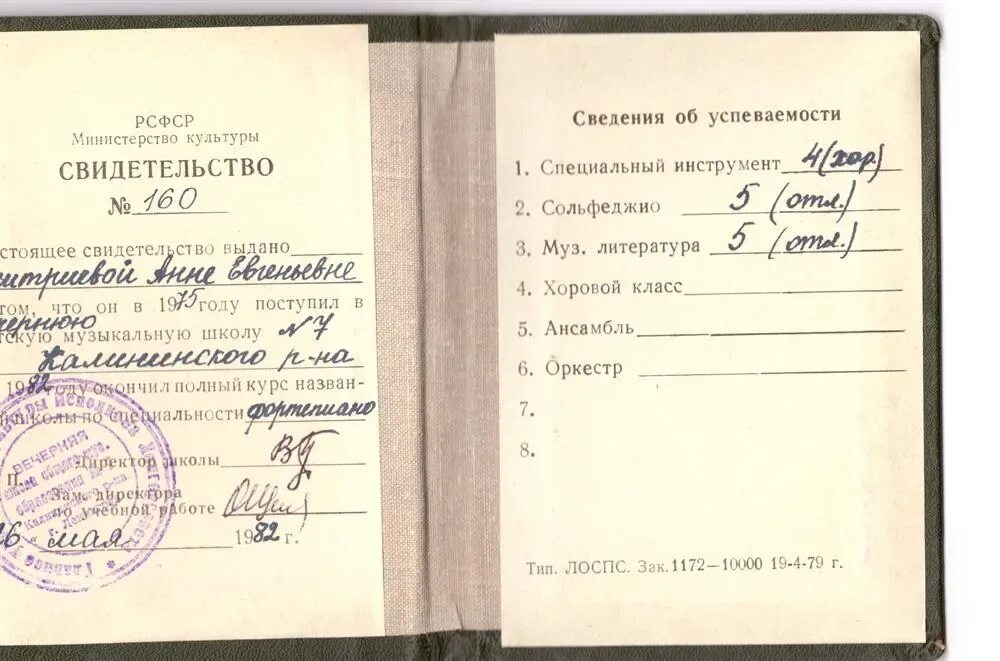 РСФСР
Министерство культуры
СВИДЕТЕЛЬСТВО
№ 160
стоящее свидетельство выдано
итриевой Анне Евгеньевне
том, что он в 1975 году поступил в
чернюю
тскую музыкальную школу №7
Калининского р-на
1982 году окончил полный курс назван-
й школы по специальности фортепиано
Директор школы
П.
Зам. директора
по учебной работе
26 " мая 1982 г.
ВЕЧЕРНЯЯ
Калининского р-на
Сведения об успеваемости
1. Специальный инструмент 4 (хор.)
2. Сольфеджио 5 (отл.)
3. Муз. литература 5 (отл.)
4. Хоровой класс
5. Ансамбль
6. Оркестр
7.
8.
Тип. ЛОСПС. Зак. 1172—10000 19-4-79 г.